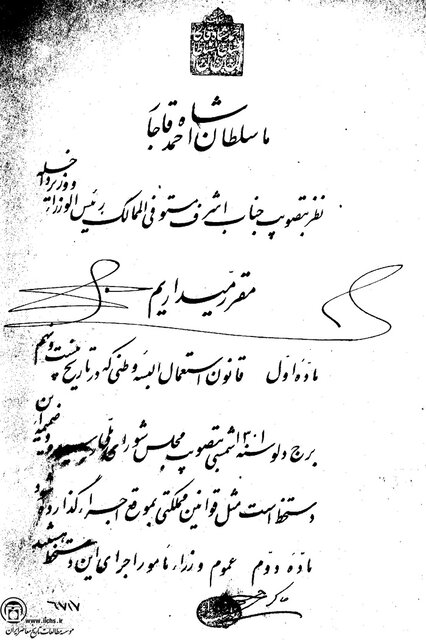 ما سلطان احمد شاه قاجار
نظر بتصویب جناب اشرف مستوفی الممالک رئیس الوزراء و وزیر داخله
مقرر میداریم
ماده اول قانون استعمال البسه وطنی که در تاریخ بیست و نهم
برج دلو سنه ۱۳۰۱ شمسی بتصویب مجلس شورای ملی رسیده و ضمیمه این
دستخط است مثل قوانین مملکتی بموقع اجراء گذارده شود
ماده دوم عموم وزراء مأمور اجرای این دستخط هستند
۶۷۱۷
www.iichs.ir
موسسه مطالعات تاریخ معاصر ایران